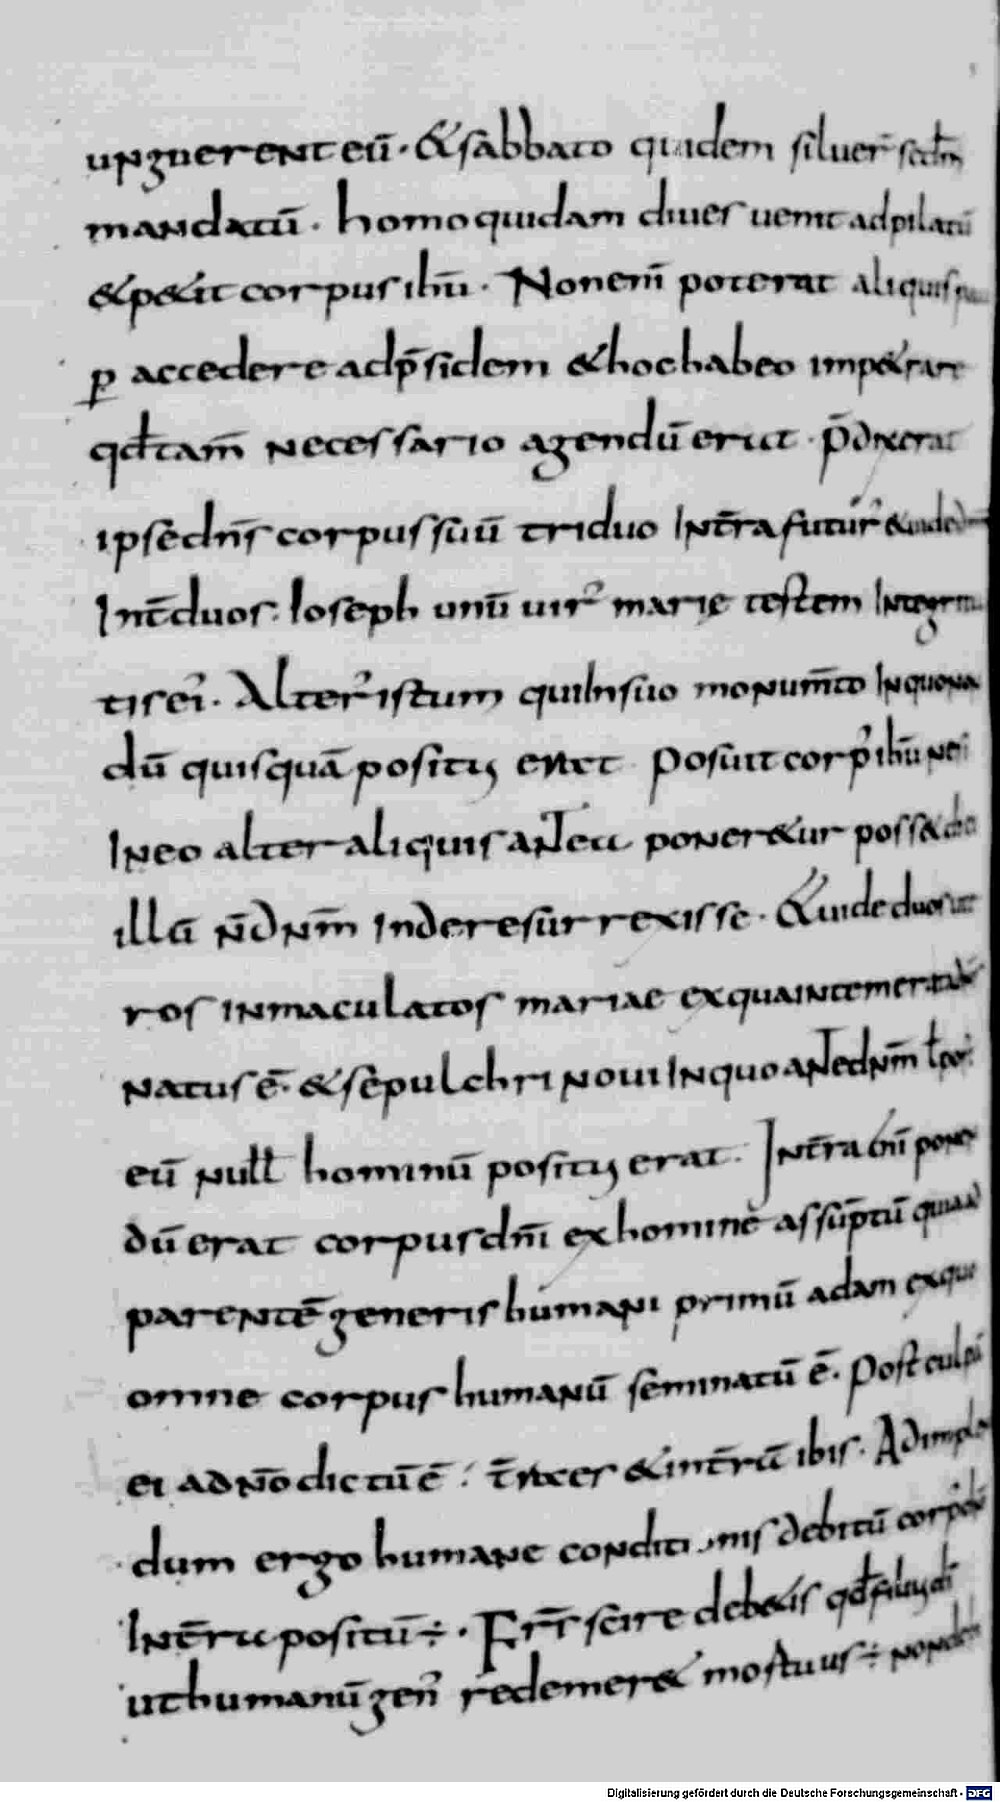 unguerent eū· & sabbato quidem siluer̄ secdm̄
mandatū· homo quidam diues uenit ad pilatū
& p&iit corpus ihū· Non enī poterat aliquis
p accedere ad p̄sidem & hoc habeo imp&rare
qd̄ tam̄ necessario agendū erit· p̄dixerat
ipse dn̄s corpus suū triduo Int̄ra futur̄ & uide
Int̄ duos· Ioseph unū uir̄ marię testem Integri
tis eī· Alter̄ istum qui In suo monum̄to In quo na
dū quisquā positus esset posuit corp̄ ihū ne si
In eo alter aliquis antea poner&ur poss&
illū n̄ dn̄m Inde resurrexisse· & uide duos
ros inmaculatos mariae ex qua intemerata
natus ē· & sepulchri noui In quo ante dn̄m
eū null̄ hominū positus erat· Int̄ra
dū erat corpus dn̄i ex homine assūptū quia ad
parentē generis humani primū adam ex quo
omne corpus humanū seminatū ē· post culpā
ei ad n̄o dictū ē· t̄ra es & in t̄rā ibis· Adimplen
dum ergo humane conditionis debitū corp̄
In t̄ra positū ÷· Fr̄s scire deb&is qd̄ filius dī
ut humanū gen̄ redemer& mortuus ÷
Digitalisierung gefördert durch die Deutsche Forschungsgemeinschaft - DFG